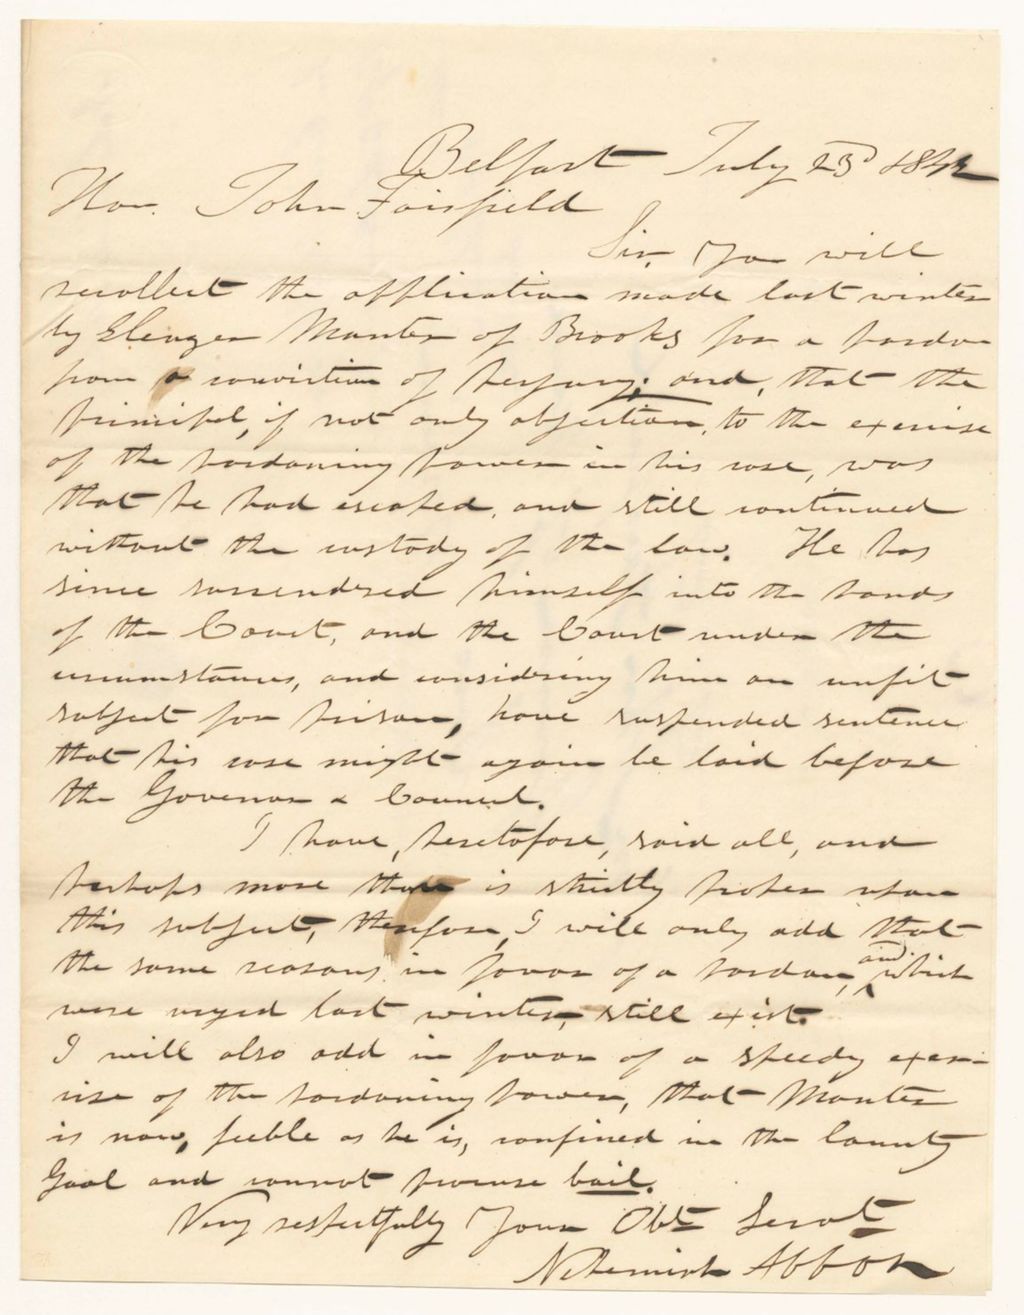 Belfast July 23d 1842
Hon. John Fairfield
Sir. You will
recollect the application made last winter
by Eleazer Manter of Brooks for a pardon
from a conviction of perjury; and, that the
principal, if not only objection, to the exercise
of the pardoning power in his case, was
that he had escaped, and still continued
without the custody of the law. He has
since surrendered himself into the hands
of the Court, and the Court under the
circumstances, and considering him an unfit
subject for prison, have suspended sentence
that his case might again be laid before
the Govenor & Council.
I have, heretofore, said all, and
perhaps more than is strictly proper upon
this subject, therefore, I will only add that
the same reasons in favor of a pardon, and which
were urged last winter, still exist.
I will also add in favor of a speedy exer-
cise of the pardoning power, that Manter
is now, feeble as he is, confined in the County
Goal and cannot procure bail.
Very respectfully Your Obt Servt
Nehemiah Abbot